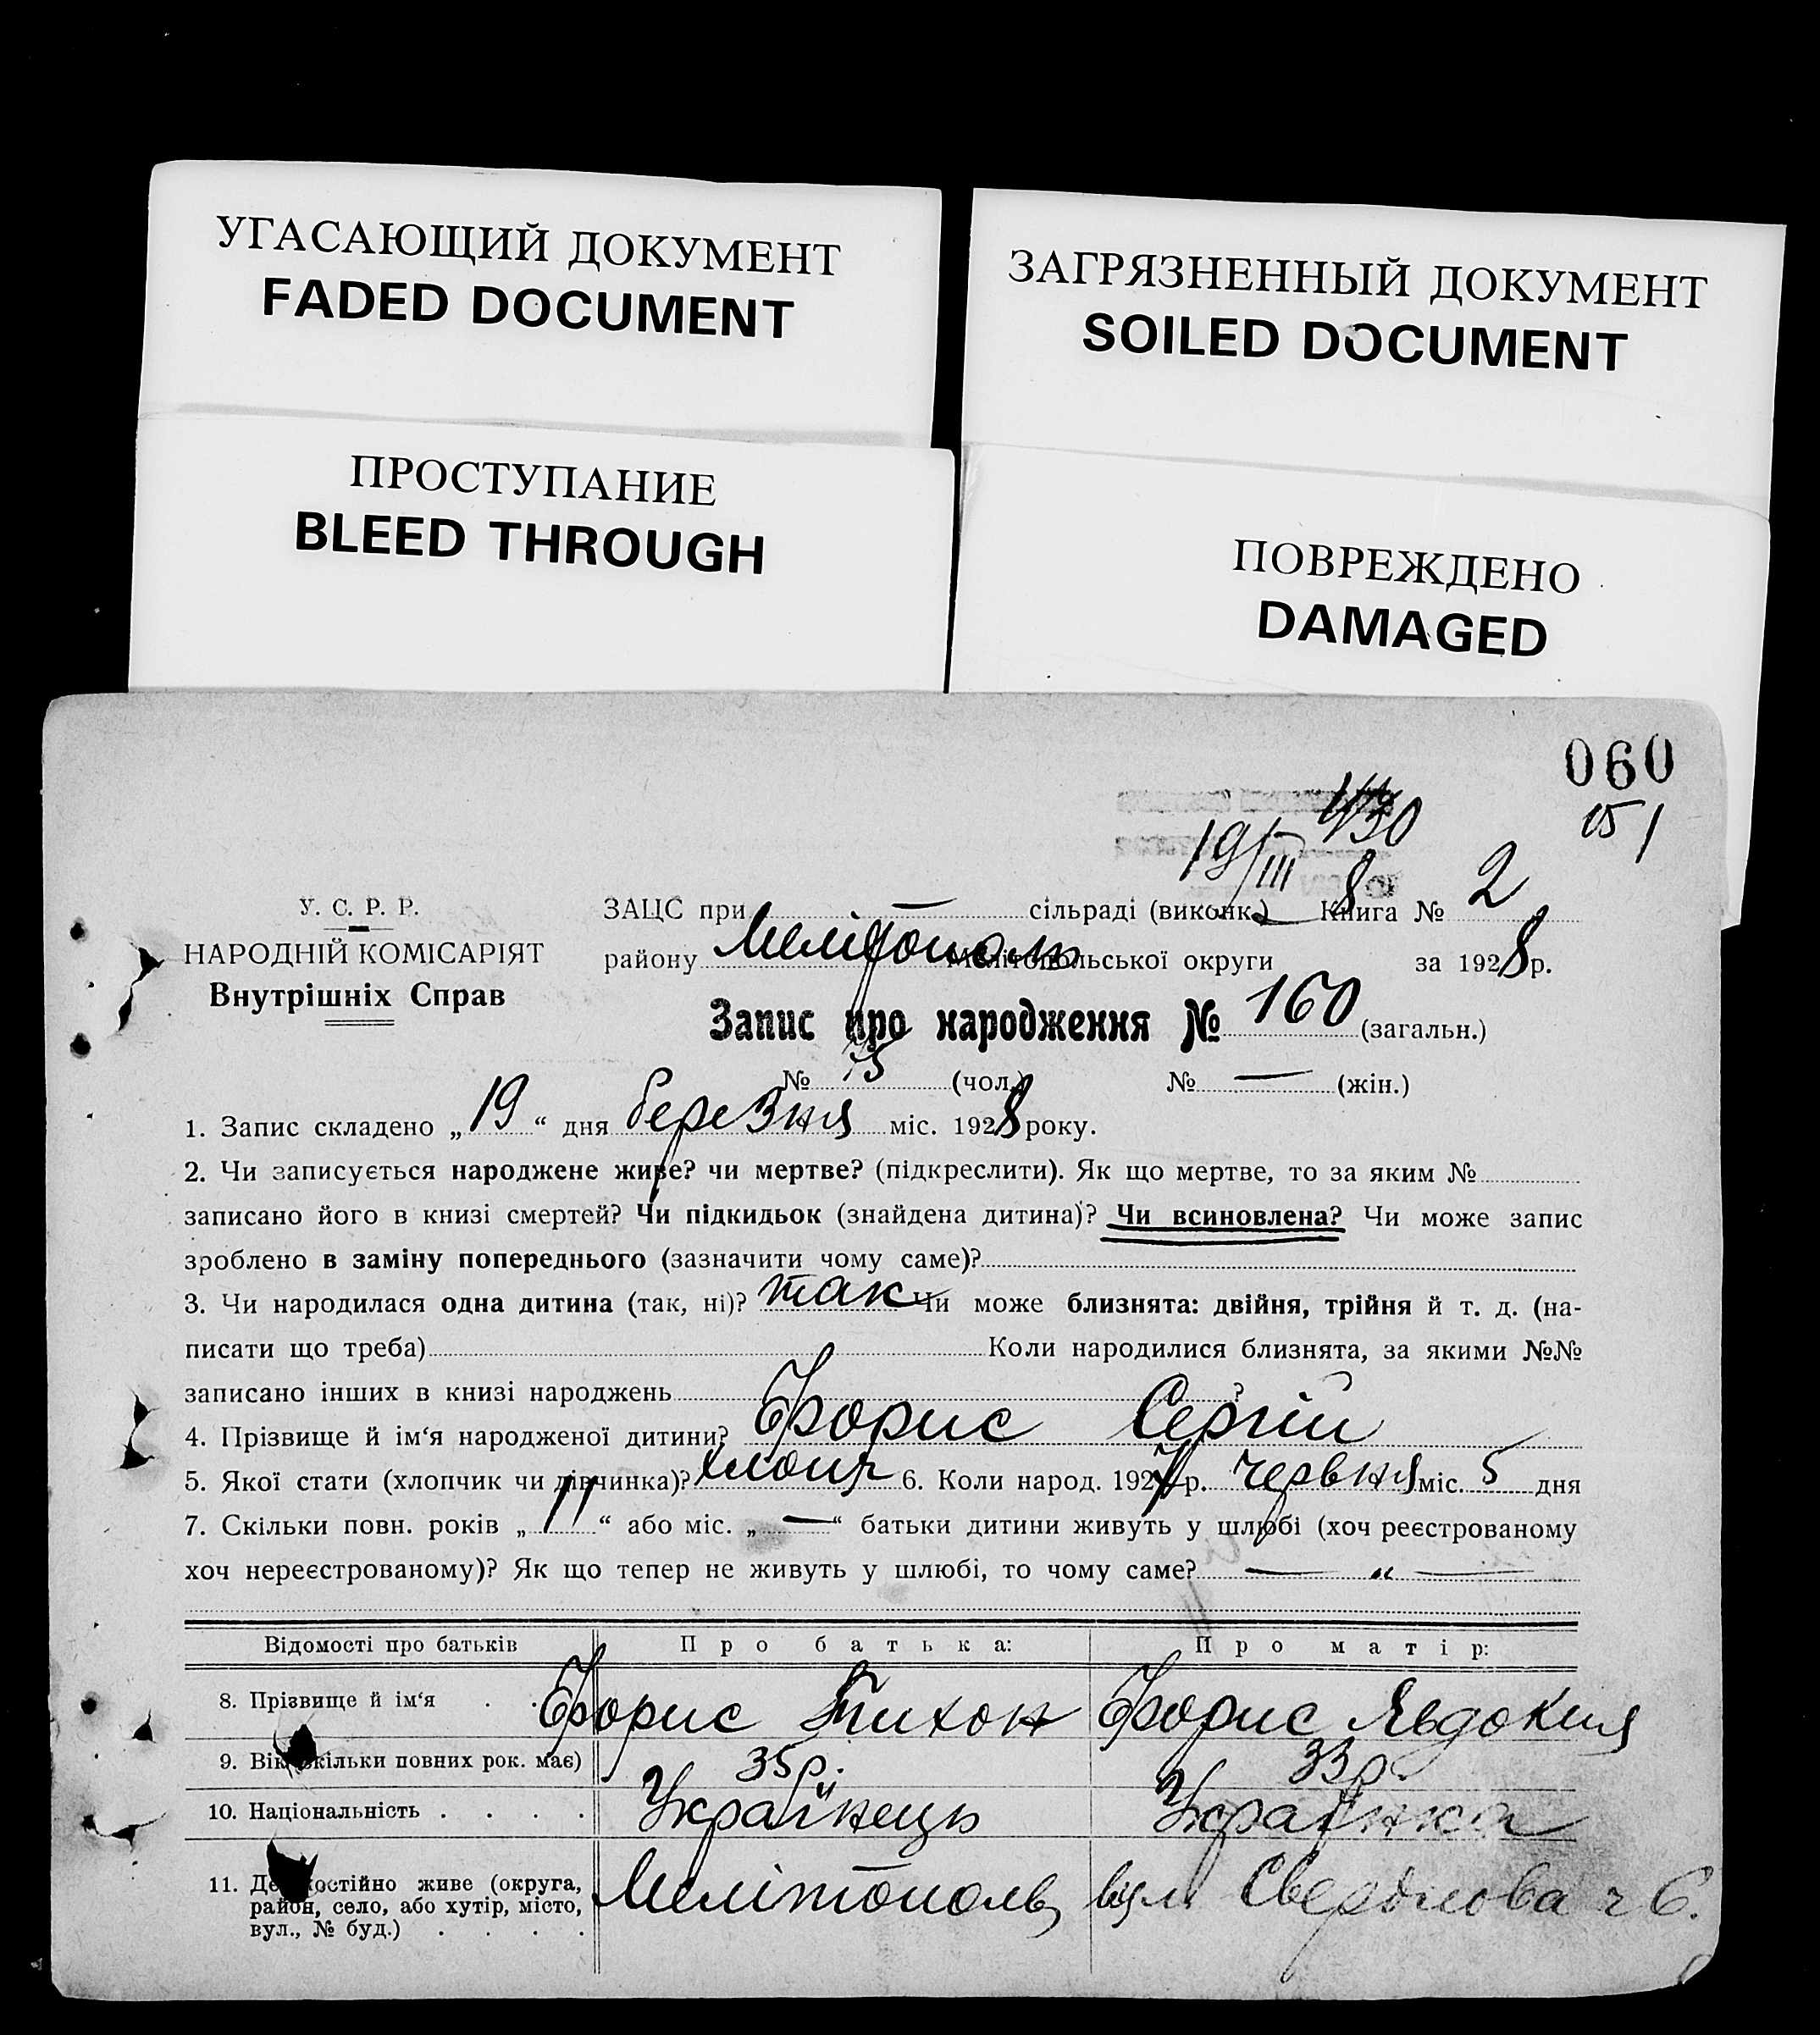 УГАСАЮЩИЙ ДОКУМЕНТ
FADED DOCUMENT
ЗАГРЯЗНЕННЫЙ ДОКУМЕНТ
SOILED DOCUMENT
ПРОСТУПАНИЕ
BLEED THROUGH
ПОВРЕЖДЕНО
DAMAGED
060
151
19/III 8
У. С. Р. Р.
НАРОДНІЙ КОМІСАРІЯТ
Внутрішніх Справ
ЗАЦС при — сільраді (виконк.) — Книга № 2
району Мелітополь Мелітопольської округи за 1928 р.
Запис про народження № 160 (загальн.)
№ 75 (чол.) № — (жін.)
1. Запис складено „19“ дня березня міс. 1928 року.
2. Чи записується народжене живе? чи мертве? (підкреслити). Як що мертве, то за яким №
записано його в книзі смертей? Чи підкидьок (знайдена дитина)? Чи всиновлена? Чи може запис
зроблено в заміну попереднього (зазначити чому саме)?
3. Чи народилася одна дитина (так, ні)? так Чи може близнята: двійня, трійня й т. д. (на-
писати що треба) Коли народилися близнята, за якими №№
записано інших в книзі народжень ?
4. Прізвище й ім‘я народженої дитини? Форис Сергій
5. Якої стати (хлопчик чи дівчинка)? хлопя 6. Коли народ. 1927 р. червня міс. 5 дня
7. Скільки повн. років „11“ або міс. „—“ батьки дитини живуть у шлюбі (хоч реєстрованому
хоч нереєстрованому)? Як що тепер не живуть у шлюбі, то чому саме? — „ —
Відомості про батьків Про батька: Про матір:
8. Прізвище й ім‘я . . Форис Тихон Форис Явдокия
9. Вік скільки повних рок. має) 35 р. 33 р.
10. Національність . . . . Українець Українка
11. Де постійно живе (округа,
район, село, або хутір, місто,
вул., № буд.) . . . .
Мелітополь вул Свердлова ч 6.